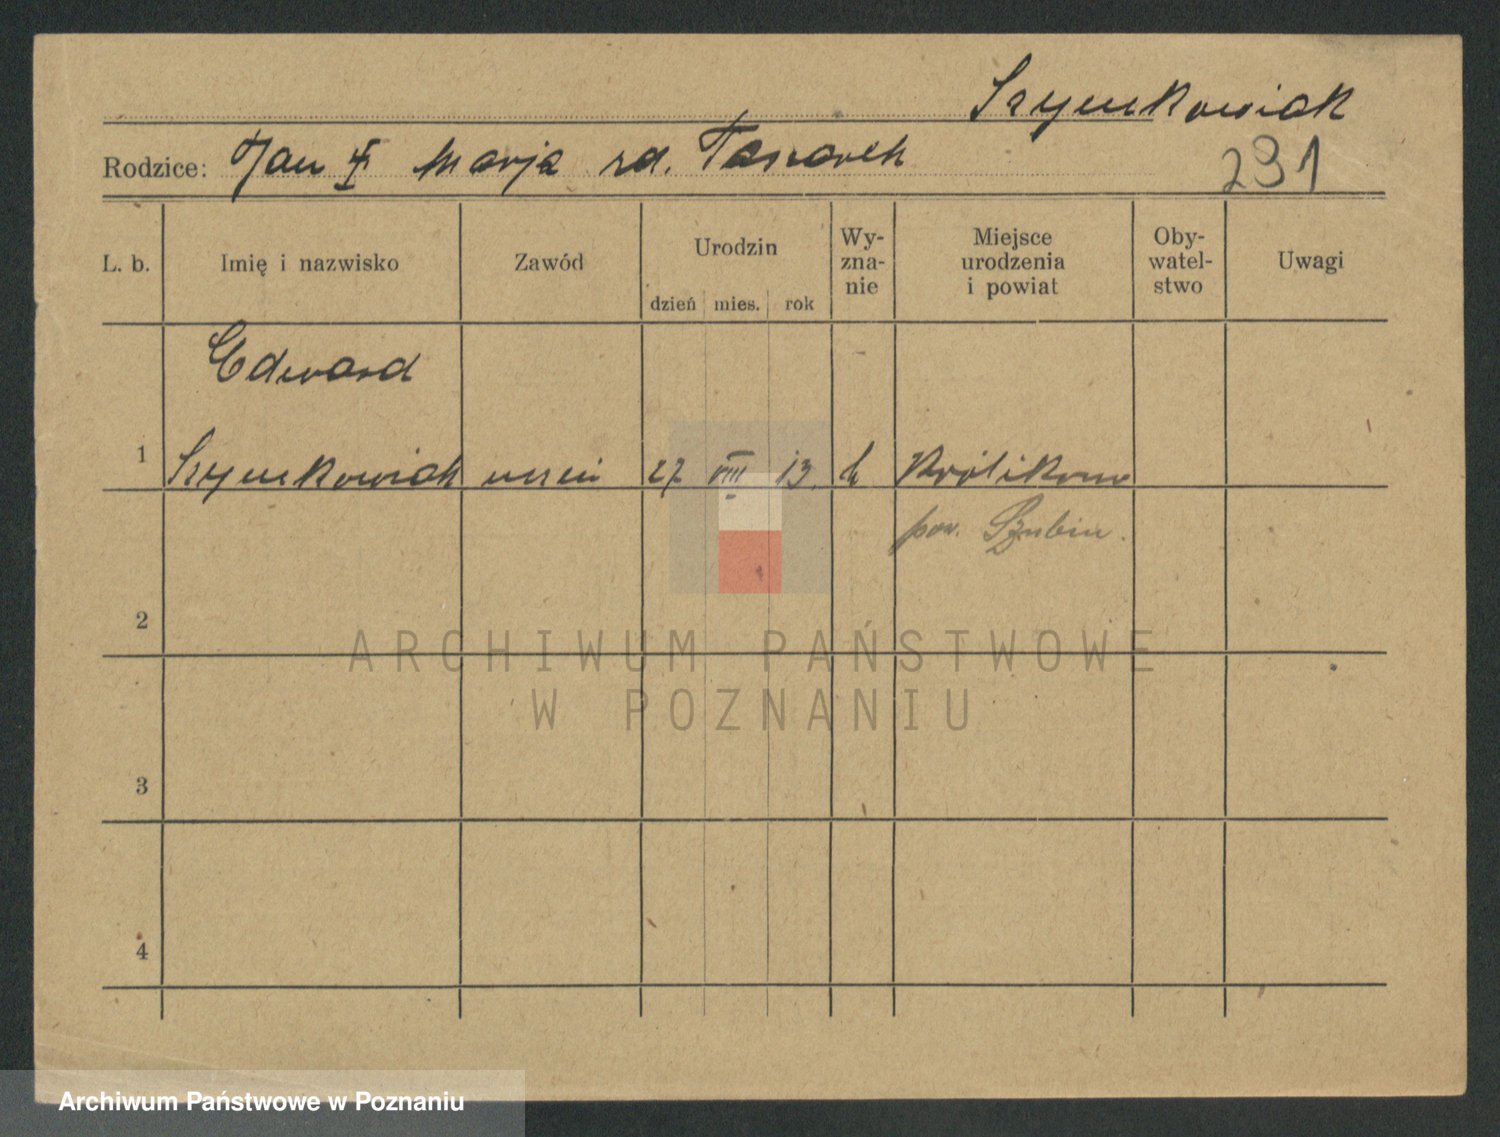 Szymkowiak
Rodzice: Jan Marja rd.
291
L. b. Imię i nazwisko Zawód Urodzin dzień mies. rok Wy-zna-nie Miejsce urodzenia i powiat Oby-watel-stwo Uwagi
Edward
1 Szymkowiak uczeń 27 VIII 13. k Królikowo
pow. Szubin.
2
ARCHIWUM PAŃSTWOWE
W POZNANIU
3
4
Archiwum Państwowe w Poznaniu